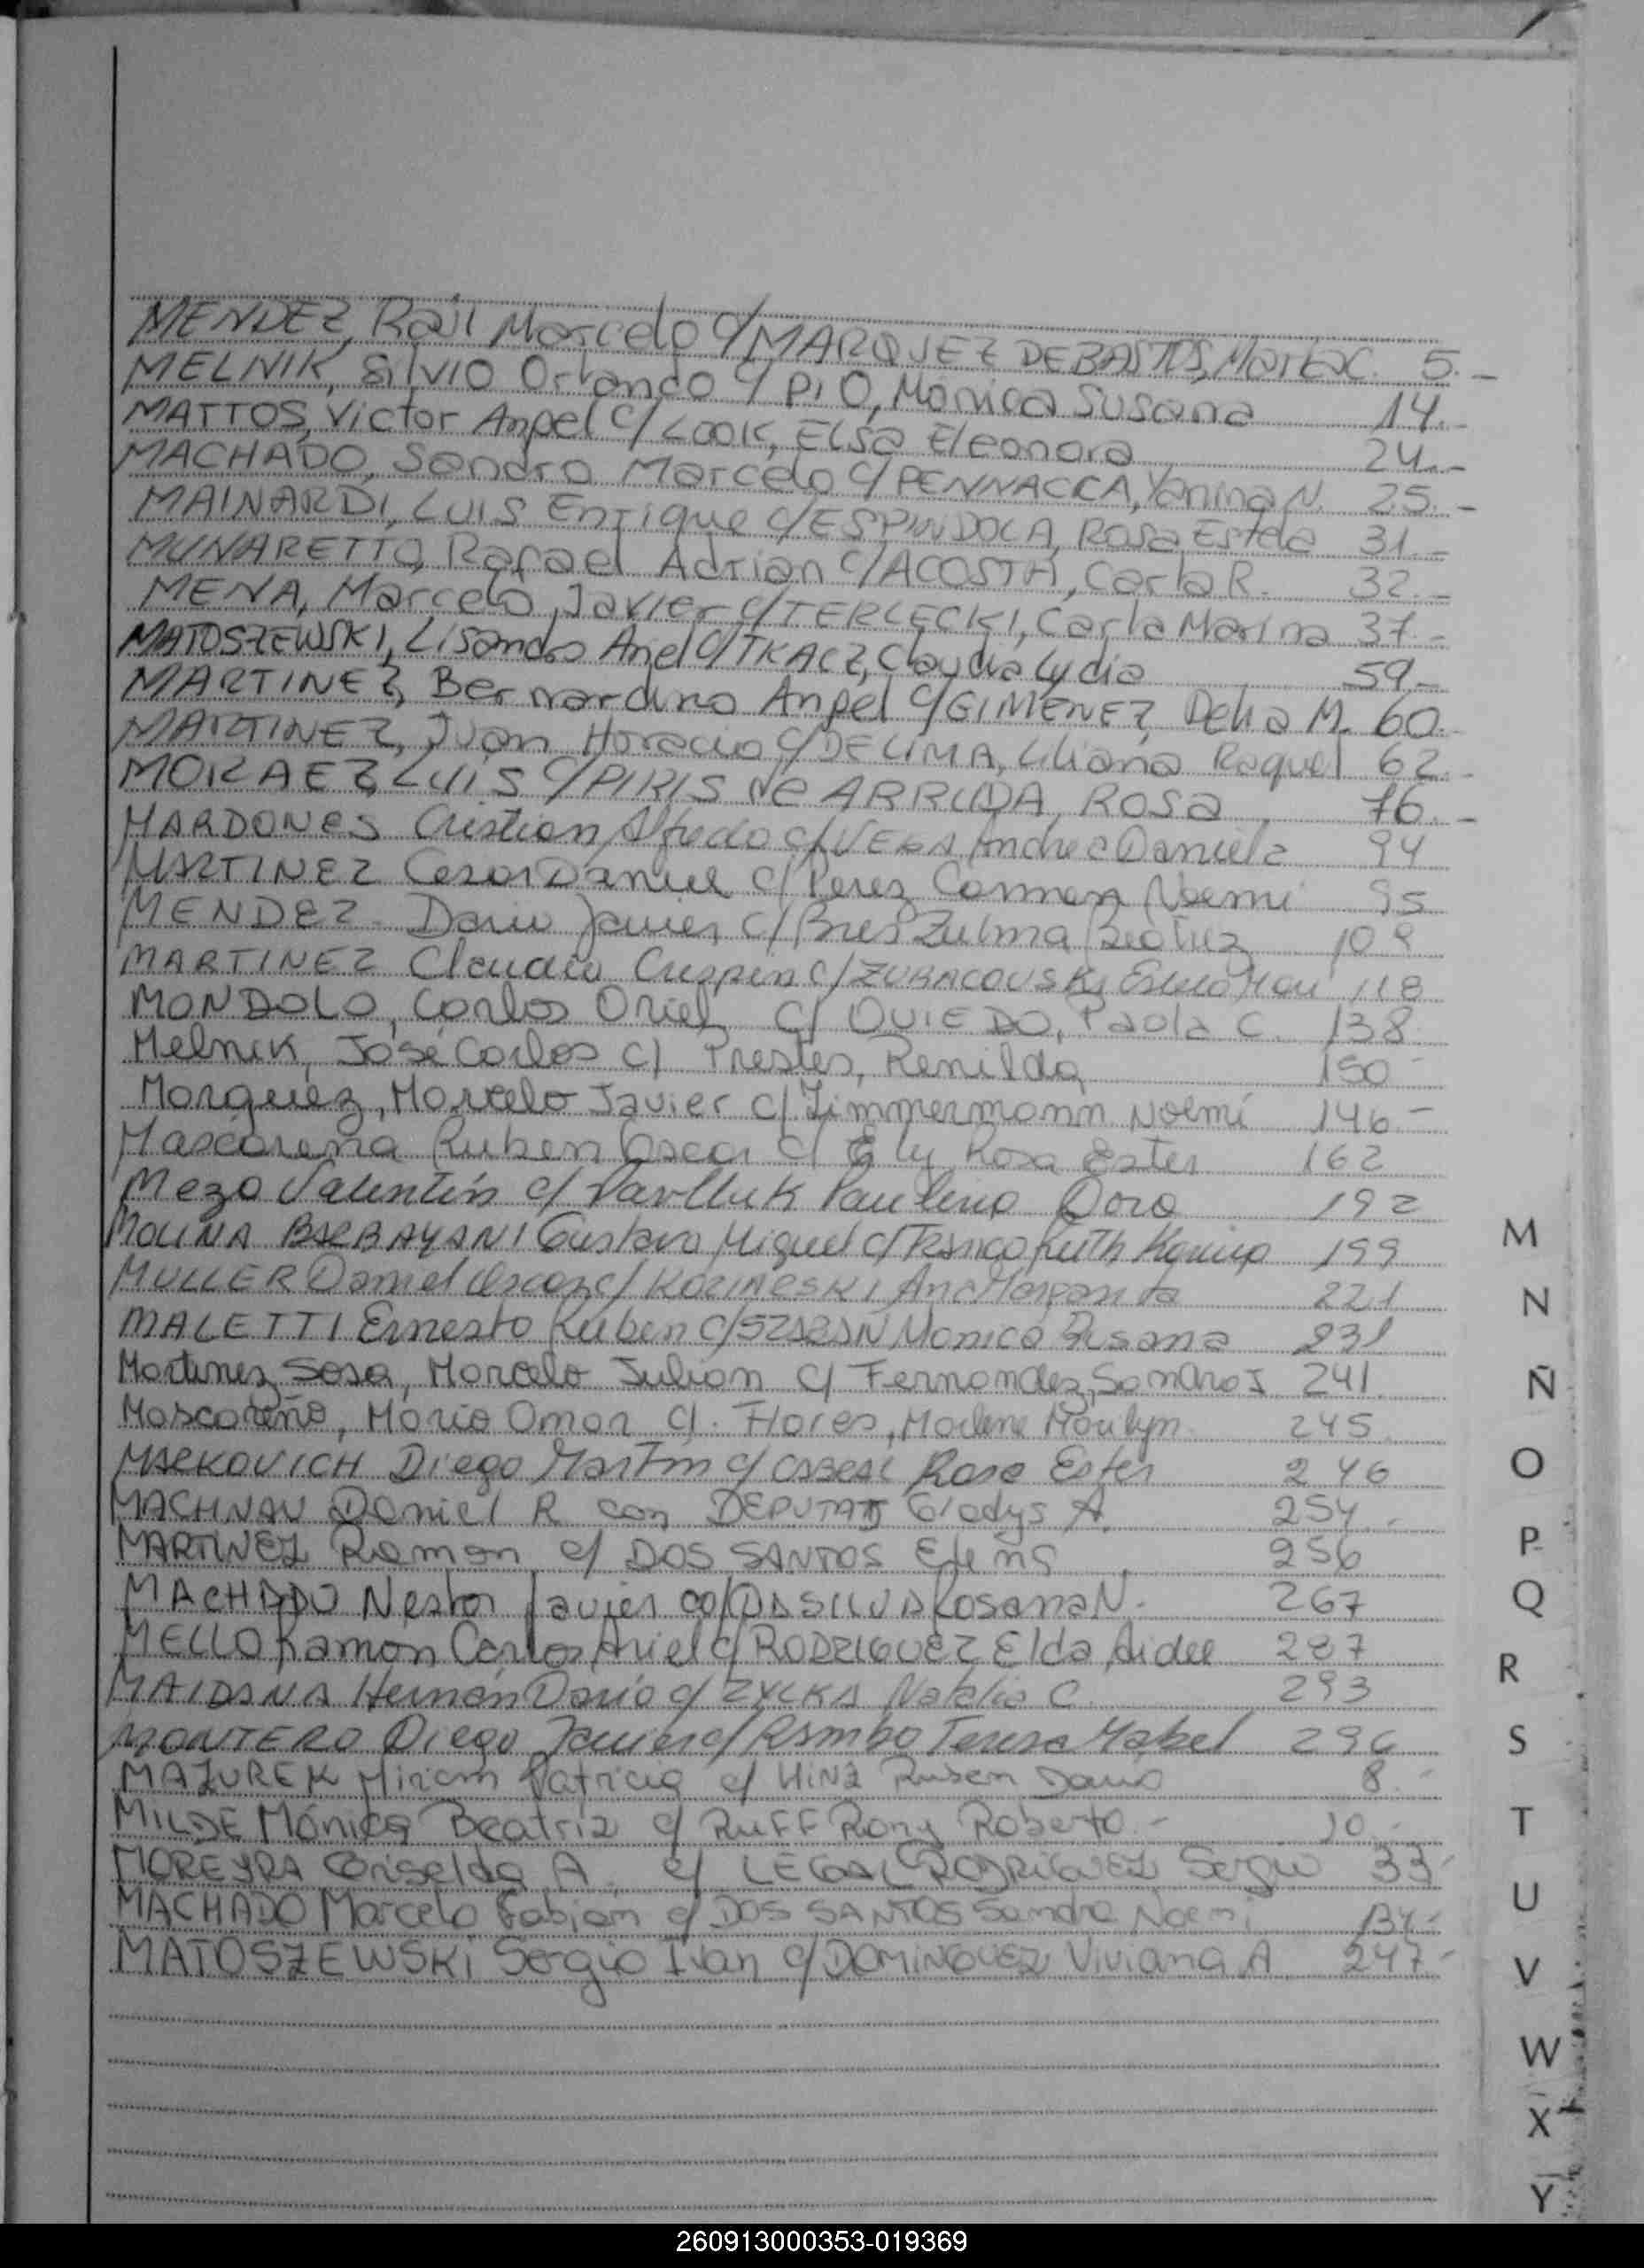 MENDEZ, Raúl Marcelo c/ MARQUEZ DE BASTOS, Marta C. 5.-
MELNIK, Silvio Orlando c/ PIO, Mónica Susana 14.-
MATTOS, Victor Angel c/ LOOK, Elsa Eleonora 24.-
MACHADO, Sandro Marcelo c/ PENNACCA, Yanina N. 25.-
MAINARDI, Luis Enrique c/ ESPINDOLA, Rosa Estela 31.-
MUNARETTO, Rafael Adrian c/ ACOSTA, Carla R. 32.-
MENA, Marcelo Javier c/ TERLECKI, Carla Marina 37.-
MATOSZEWSKI, Lisandro Ariel c/ TKACZ, Claudia Lydia 59.-
MARTINEZ, Bernardino Angel c/ GIMENEZ, Delia M. 60.-
MARTINEZ, Juan Horacio c/ DE LIMA, Liliana Raquel 62.-
MORAEZ, Luis c/ PIRIS de ARRUDA, Rosa 76.-
MARDONES Cristian Alfredo c/ VEGA Andrea Daniela 94
MARTINEZ Cesar Daniel c/ Perez Carmen Noemi 95
MENDEZ Dario Javier c/ Bres Zulma Beatriz 109
MARTINEZ Claudio Crispin c/ ZUBACOVSKY 118
MONDOLO, Carlos Oriel c/ OVIEDO, Paola C. 138
Melnik, José Carlos c/ Prestes, Renilda 150-
Marquez, Marcelo Javier c/ Zimmermann Noemí 146-
Mascareña Ruben Oscar c/ Ely Rosa Ester 162
Mezo Valentín c/ Pavlluk Paulina Dora 192
MOLINA BARBAYANI Gustavo Miguel c/ Franco Ruth Karina 199
MULLER Daniel Oscar c/ KOZINESKI Ana Margarita 221
MALETTI Ernesto Ruben c/ SZABAN Monica Susana 231
Martinez Sosa, Marcelo Julian c/ Fernandez, Sandra I 241
Mascareño, Mario Omar c/. Flores, Marlene Marilyn. 245
MARKOVICH Diego Martín c/ CABRAL Rosa Ester 246
MACHNAU Daniel R con DEPUTAT Gladys A. 254.-
MARTINEZ Ramon c/ DOS SANTOS Elena 256
MACHADO Nestor Javier co/ DA SILVA Rosana N. 267
MELLO Ramon Carlos Ariel c/ RODRIGUEZ Elda Aidee 287
MAIDANA Hernán Darío c/ ZYLKA Natalia C. 293
MONTERO Diego Javier c/ Rambo Teresa Mabel 296
MAZUREK Miriam Patricia c/ HINZ Ruben Dario 8.-
MILDE Mónica Beatriz c/ RUFF Rony Roberto.- 10.-
MOREYRA Griselda A. c/ LEGAL RODRIGUEZ Sergio 33-
MACHADO Marcelo Fabian c/ DOS SANTOS Sandra Noemi 134-
MATOSZEWSKI Sergio Ivan c/ DOMINGUEZ Viviana A 247-
M
N
Ñ
O
P
Q
R
S
T
U
V
W
X
Y
260913000353-019369